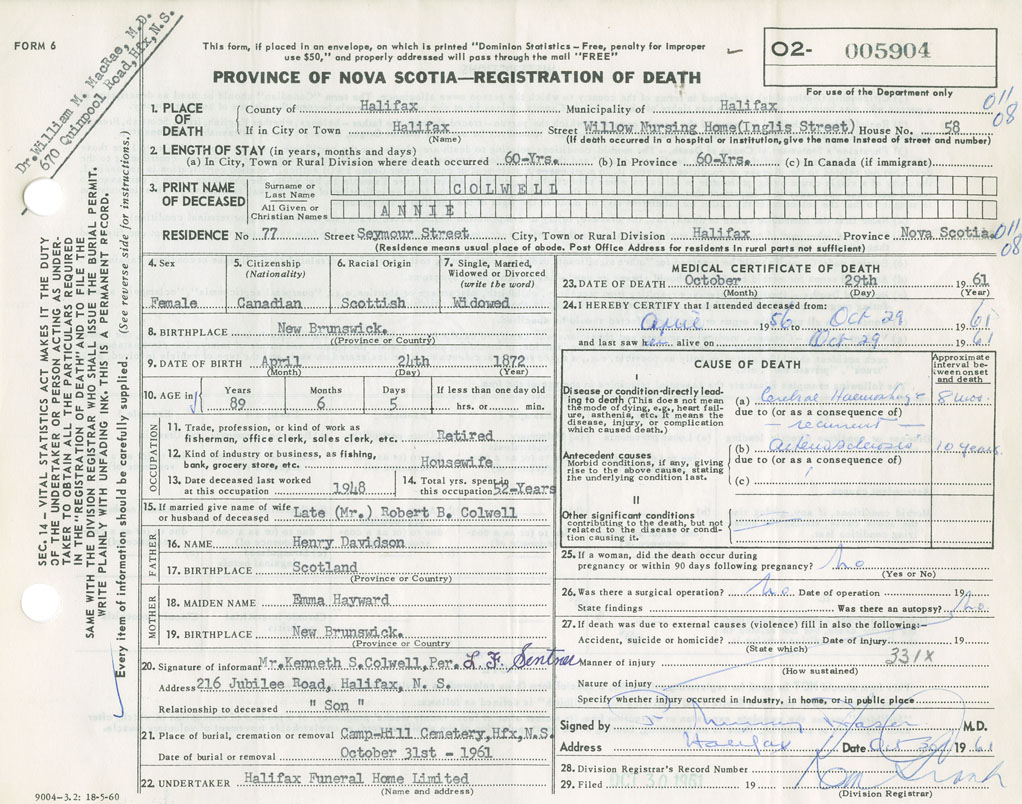 Dr. William M. MacRae, M.D.
670 Quinpool Road, Hfx, N.S.
FORM 6
This form, if placed in an envelope, on which is printed "Dominion Statistics – Free, penalty for improper
use $50," and properly addressed will pass through the mail "FREE"
PROVINCE OF NOVA SCOTIA—REGISTRATION OF DEATH
O2- 005904
For use of the Department only
011
08
SEC. 14 – VITAL STATISTICS ACT MAKES IT THE DUTY
OF THE UNDERTAKER OR PERSON ACTING AS UNDER-
TAKER TO OBTAIN ALL THE PARTICULARS REQUIRED
IN THE "REGISTRATION OF DEATH" AND TO FILE THE
SAME WITH THE DIVISION REGISTRAR WHO SHALL ISSUE THE BURIAL PERMIT.
WRITE PLAINLY WITH UNFADING INK. THIS IS A PERMANENT RECORD.
Every item of information should be carefully supplied. (See reverse side for instructions.)
1. PLACE OF DEATH
County of Halifax Municipality of Halifax
If in City or Town Halifax Street Willow Nursing Home(Inglis Street) House No. 58
(Name) (If death occurred in a hospital or institution, give the name instead of street and number)
2. LENGTH OF STAY (in years, months and days)
(a) In City, Town or Rural Division where death occurred 60-Yrs. (b) In Province 60-Yrs. (c) In Canada (if immigrant)
3. PRINT NAME OF DECEASED
Surname or Last Name COLWELL
All Given or Christian Names ANNIE
RESIDENCE No 77 Street Seymour Street City, Town or Rural Division Halifax Province Nova Scotia 011
08
(Residence means usual place of abode. Post Office Address for residents in rural parts not sufficient)
4. Sex
Female
5. Citizenship
(Nationality)
Canadian
6. Racial Origin
Scottish
7. Single, Married,
Widowed or Divorced
(write the word)
Widowed
8. BIRTHPLACE New Brunswick.
((Province or Country)
9. DATE OF BIRTH April 24th 1872
(Month) (Day) (Year)
10. AGE in Years Months Days If less than one day old
89 6 5 hrs. or min.
OCCUPATION
11. Trade, profession, or kind of work as
fisherman, office clerk, sales clerk, etc. Retired
12. Kind of industry or business, as fishing,
bank, grocery store, etc. Housewife
13. Date deceased last worked
at this occupation 1948
14. Total yrs. spent in
this occupation 52-Years
15. If married give name of wife
or husband of deceased Late (Mr.) Robert B. Colwell
FATHER
16. NAME Henry Davidson
17. BIRTHPLACE Scotland
(Province or Country)
MOTHER
18. MAIDEN NAME Emma Hayward
19. BIRTHPLACE New Brunswick.
(Province or Country
20. Signature of informant Mr.Kenneth S.Colwell,Per. L F Sentner
Address 216 Jubilee Road, Halifax, N. S.
Relationship to deceased " Son "
21. Place of burial, cremation or removal Camp-Hill Cemetery,Hfx,N.S.
Date of burial or removal October 31st - 1961
22. UNDERTAKER Halifax Funeral Home Limited
(Name and address)
9004-3.2: 18-5-60
MEDICAL CERTIFICATE OF DEATH
23. DATE OF DEATH October 29th 1961
(Month) (Day) (Year)
24. I HEREBY CERTIFY that I attended deceased from:
April 1956 to Oct 29 1961
and last saw her alive on Oct 29 1961
CAUSE OF DEATH
Approximate
interval be-
tween onset
and death
I
Disease or condition directly lead-
ing to death (This does not mean
the mode of dying, e.g., heart fail-
ure, asthenia, etc. It means the
disease, injury, or complication
which caused death.)
(a) Cerebral Haemorrhage 8 mos.
due to (or as a consequence of)
– recurrent –
Antecedent causes
Morbid conditions, if any, giving
rise to the above cause, stating
the underlying condition last.
(b) arteriosclerosis 10 years
due to (or as a consequence of)
(c)
II
Other significant conditions
contributing to the death, but not
related to the disease or condi-
tion causing it.
25. If a woman, did the death occur during
pregnancy or within 90 days following pregnancy? no
(Yes or No)
26. Was there a surgical operation? no. Date of operation 19
State findings Was there an autopsy? no.
27. If death was due to external causes (violence) fill in also the following:—
Accident, suicide or homicide? Date of injury 19
(State which)
Manner of injury 331X
(How sustained)
Nature of injury
Specify whether injury occurred in industry, in home, or in public place
Signed by M.D.
Address Halifax Date Oct 30 1961
28. Division Registrar's Record Number
29. Filed OCT 30 1961 19
(Division Registrar)